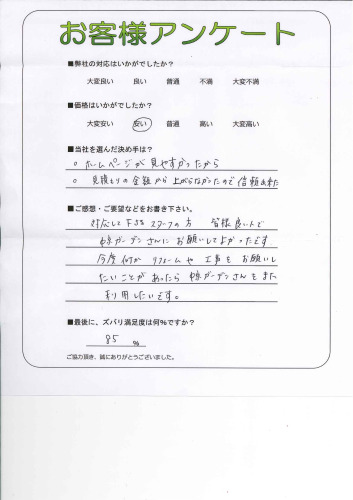 お客様アンケート
■弊社の対応はいかがでしたか？
大変良い 良い 普通 不満 大変不満
■価格はいかがでしたか？
大変安い 安い 普通 高い 大変高い
■当社を選んだ決め手は？
○ ホームページが見やすかったから
○ 見積もりの金額から上がらなかったので信頼出来た
■ご感想・ご要望などをお書き下さい。
対応して下さるスタッフの方 皆様良い人で
ガーデンさんにお願いして良かったです
今度何か リフォームや 工事を お願いし
たいことが あったら ガーデンさんを また
利用したいです。
■最後に、ズバリ満足度は何%ですか？
85 %
ご協力頂き、誠にありがとうございました。